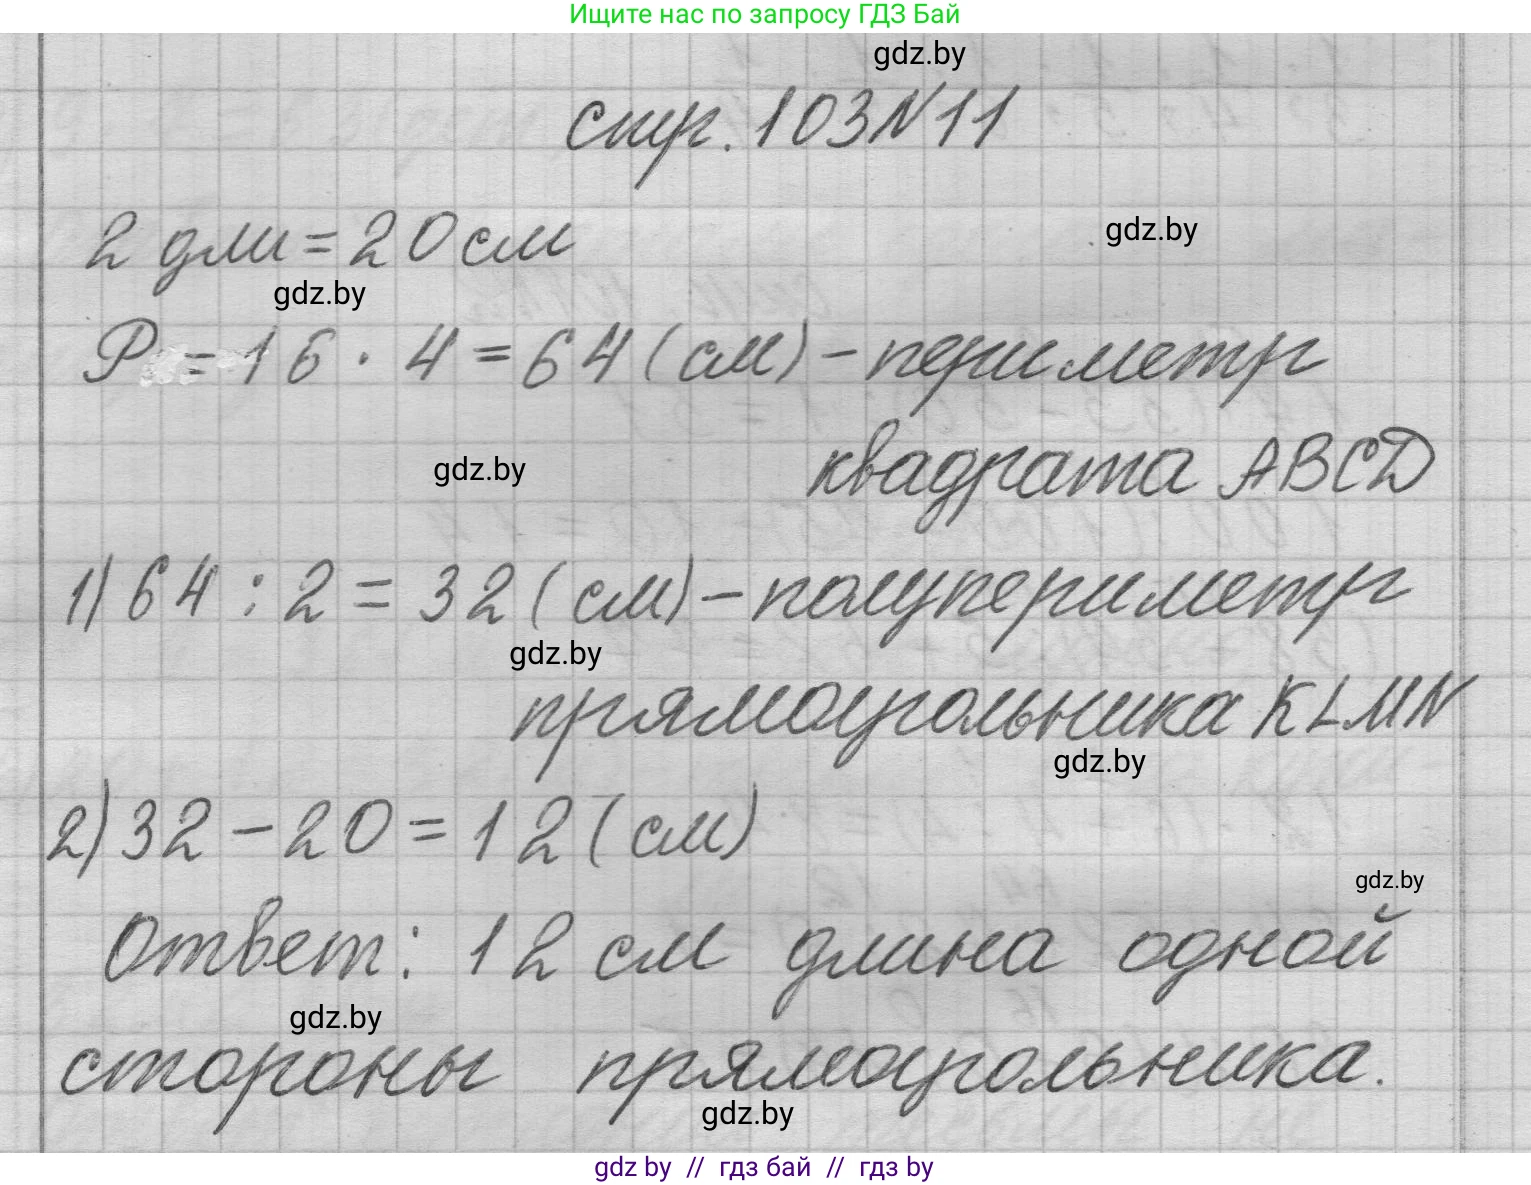 Ищите нас по запросу ГДЗ Бай
gdz.by
стр. 103 N 11
2 дм = 20 см
gdz.by
gdz.by
P = 16 · 4 = 64 (см) - периметр
квадрата ABCD
gdz.by
1) 64 : 2 = 32 (см) - полупериметр
gdz.by
прямоугольника KLMN
gdz.by
2) 32 - 20 = 12 (см)
gdz.by
Ответ: 12 см длина одной
gdz.by
стороны прямоугольника.
gdz.by
gdz by // гдз бай // гдз by